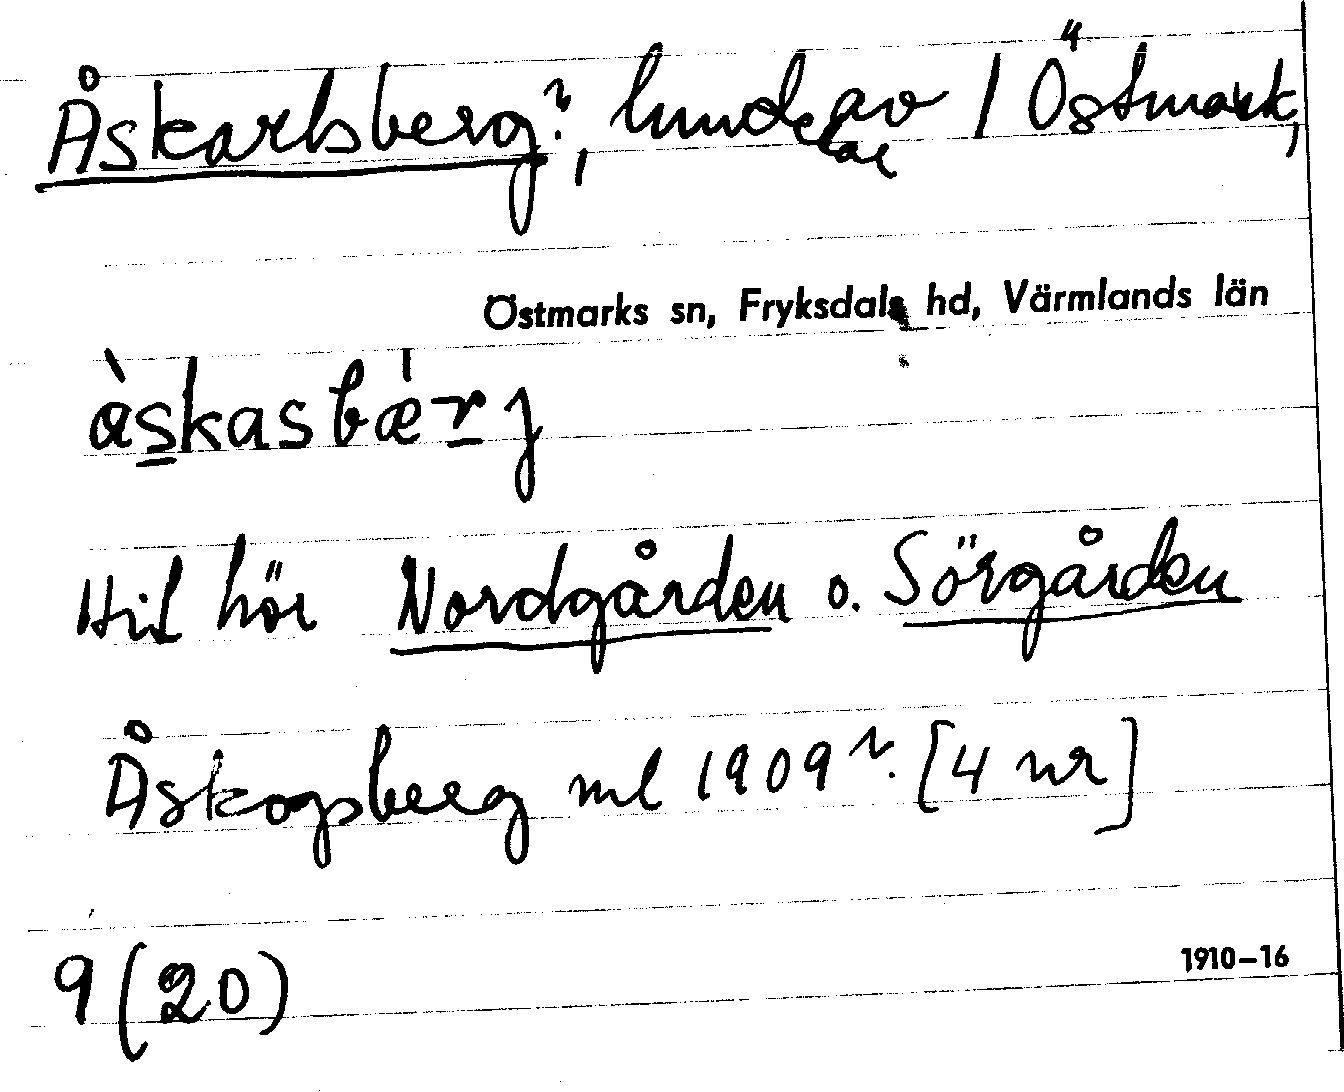 Åskarlsberg?, hmdel av 1/4 Östmark,
Östmarks sn, Fryksdals hd, Värmlands län
àskasbǽrj
Hit hör Nordgården o. Sörgården
Åskogsberg ml 1909?. [4 nr]
9 (20)
1910–16